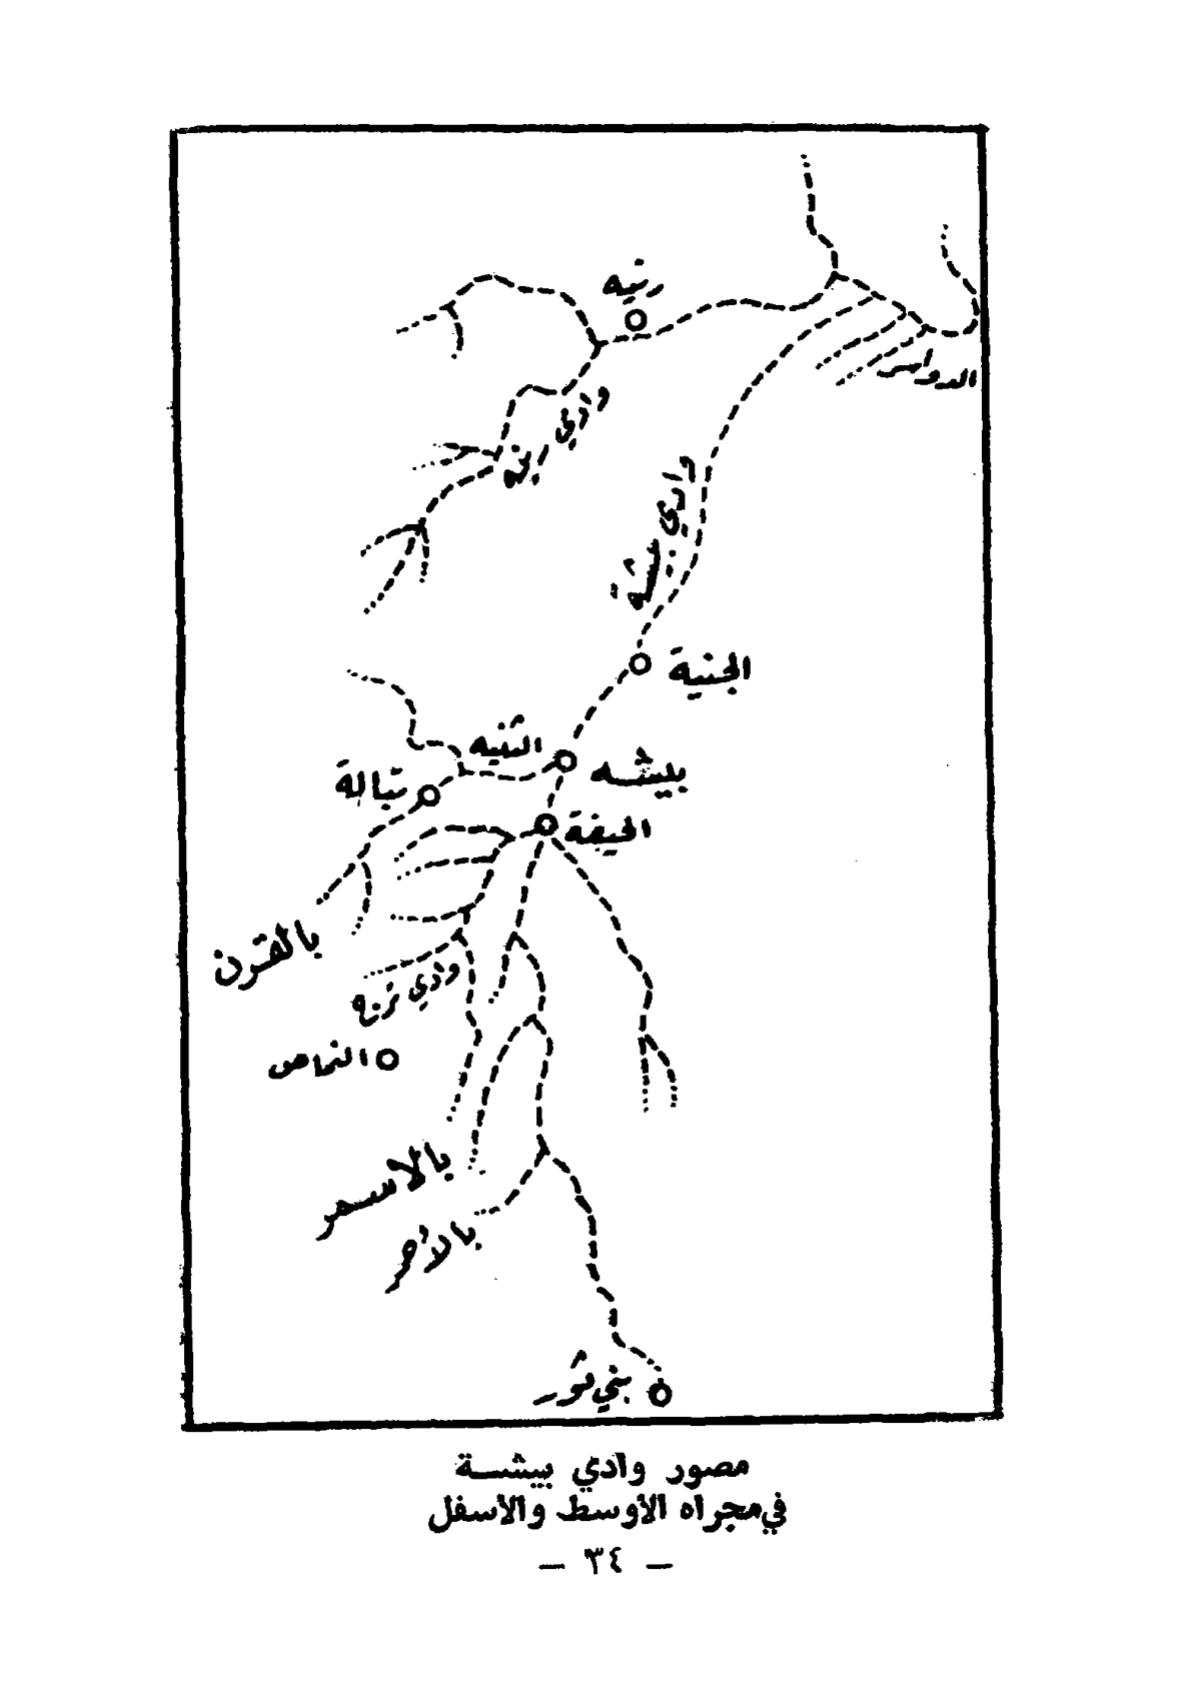 رنيه
الدواسر
وادي رنيه
وادي بيشة
الجنية
الثنيه
بيشه
تبالة
الحيفة
بالقرن
وادي ترج
النماص
بالاسمر
بالأحمر
بني ثور
مصور وادي بيشة
في مجراه الأوسط والأسفل
— ٣٤ —